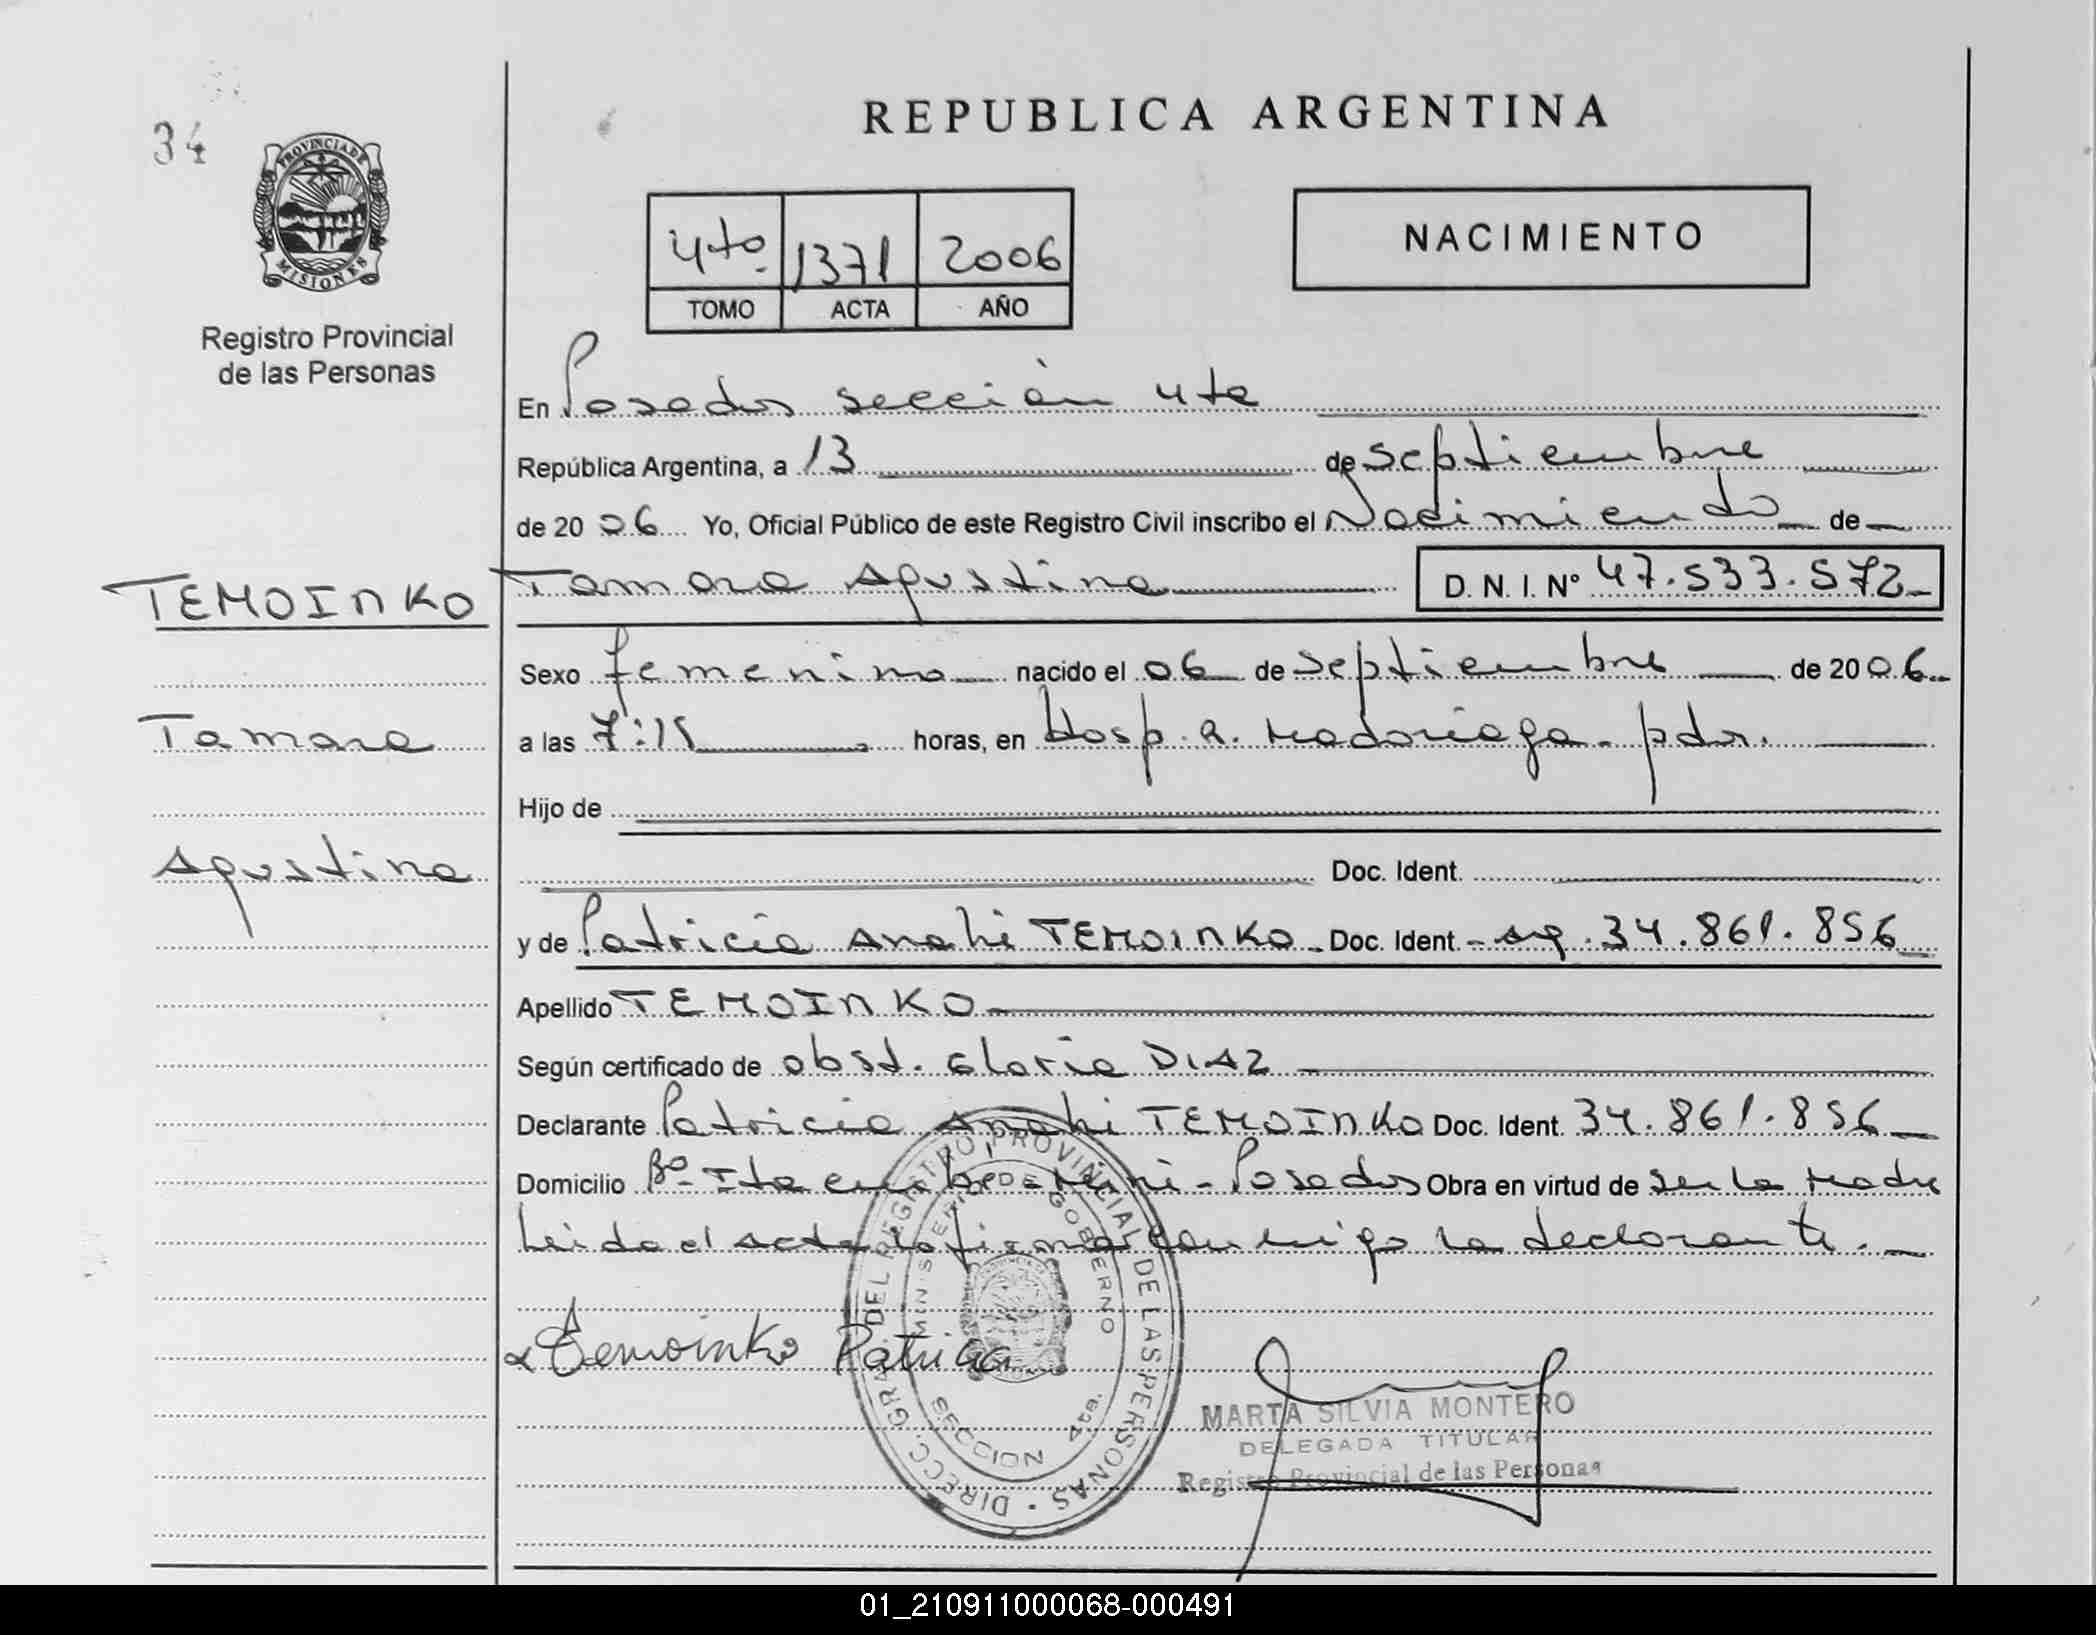 34
PROVINCIA DE
MISIONES
Registro Provincial
de las Personas
REPUBLICA ARGENTINA
4to. 1371 2006
TOMO ACTA AÑO
NACIMIENTO
En Posadas sección 4ta
República Argentina, a 13 de septiembre
de 20 06 Yo, Oficial Público de este Registro Civil inscribo el Nacimiento de
TEMOINKO
Tamara Agustina D. N. I. Nº 47.533.572
Sexo femenino nacido el 06 de septiembre de 20 06
Tamara
a las 7:15 horas, en Hosp. R. Madariaga - pdas.
Hijo de
Agustina
Doc. Ident.
y de Patricia Anahi TEMOINKO Doc. Ident. 34.861.856
Apellido TEMOINKO
Según certificado de obst. Gloria DIAZ
Declarante Patricia Anahi TEMOINKO Doc. Ident. 34.861.856
Domicilio Bº Itaembé Mini - Posadas Obra en virtud de ser la madre
Leida el acta la firma conmigo la declarante.
Temoinko Patricia
DIRECC. GRAL. DEL REGISTRO PROVINCIAL DE LAS PERSONAS
MINISTERIO DE GOBIERNO
SECCION 4ta.
MARTA SILVIA MONTERO
DELEGADA TITULAR
Registro Provincial de las Personas
01_210911000068-000491